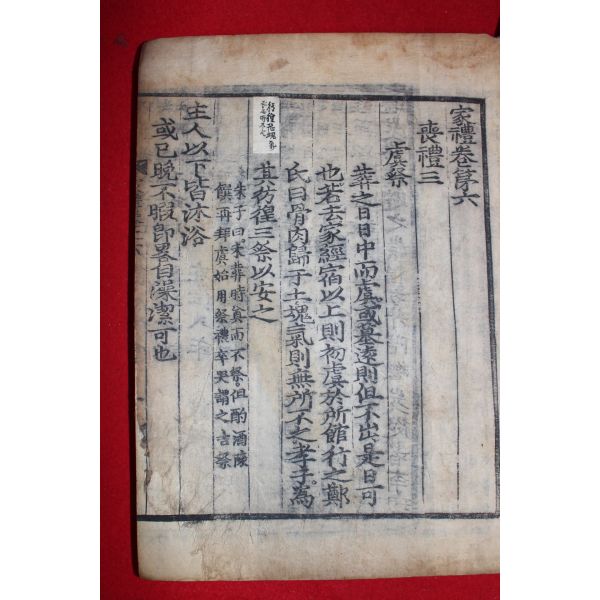 家禮卷第六
喪禮三
虞祭
葬之日日中而虞或墓遠則但不出是日可
也若去家經宿以上則初虞於所館行之鄭
氏曰骨肉歸于土魂氣則無所不之孝子爲
其彷徨三祭以安之
朱子曰未葬時奠而不祭但酌酒陳
饌再拜虞始用祭禮卒哭謂之吉祭
主人以下皆沐浴
或已晩不暇卽畧自澡潔可也